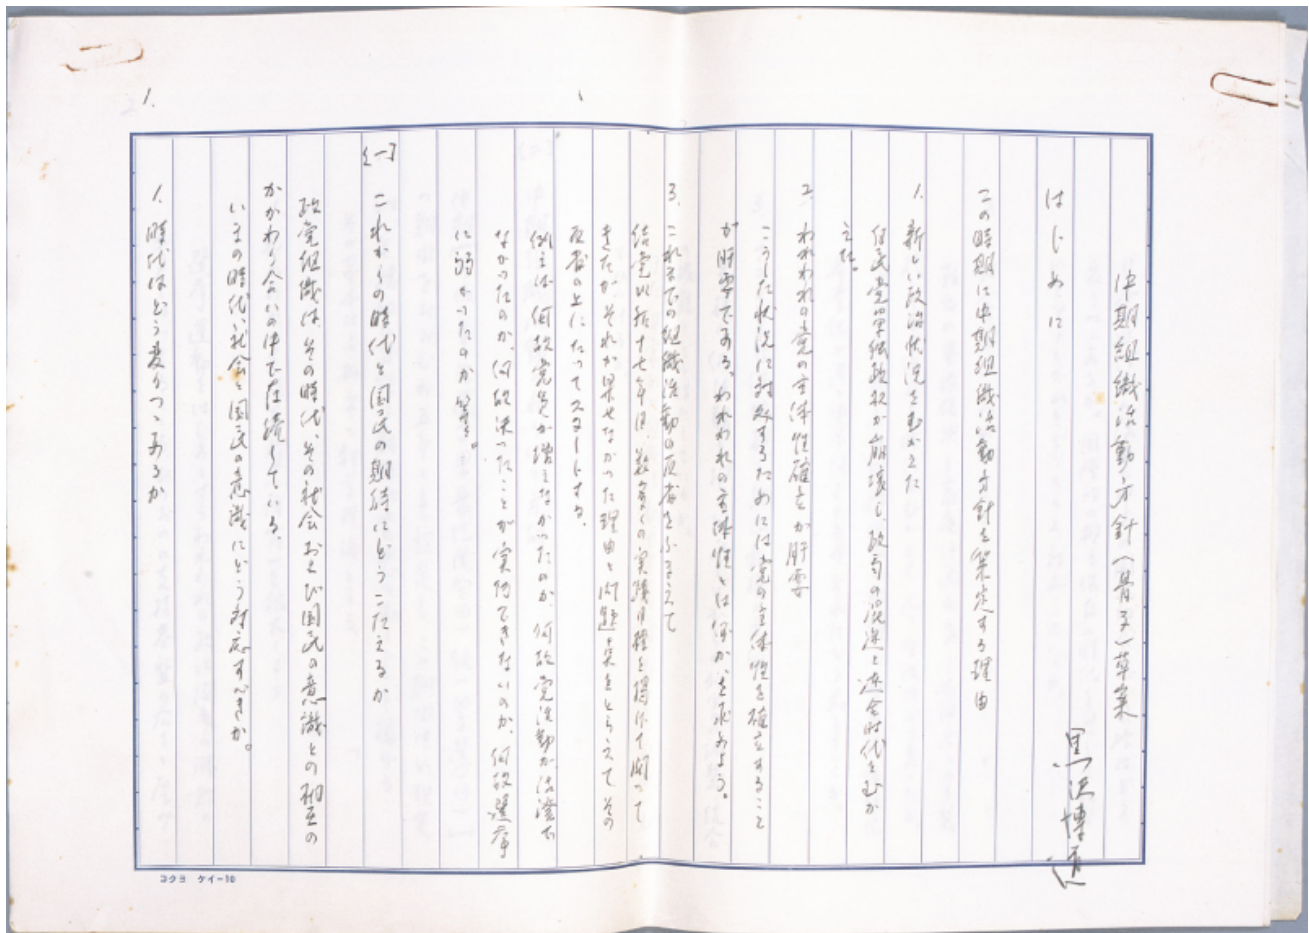 中期組織活動方針(骨子)草案
黒沢博道
はじめに
この時期に中期組織活動方針を策定する理由
1. 新しい政治状況をむかえた
自民党単独政权が崩壊し、政局の混迷と連合時代をむか
えた。
2. われわれの党の主体性確立が肝要
こうした状況に対処するためには党の主体性を確立すること
が肝要である。われわれの主体性とは何か、を求めよう。
3. これまでの組織活動の反省をふまえて
結党以来十七年目、数多くの実践目標を掲げて闘って
きたが、それが果せなかった理由と問題点をとらえてその
反省の上にたってスタートする。
例えば、何故党党が増えなかったのか、何故党活動が活溌で
なかったのか、何故決ったことが実行できないのか、何故選挙
に弱かったのか等。
[一] これからの時代と国民の期待にどうこたえるか
政党組織は、その時代、その社会および国民の意識との相互の
かかわり合いの中で存続している。
いまの時代・社会と国民の意識にどう対応すべきか。
1. 時代はどう変りつゝあるか
1.
コクヨ ケイ-10